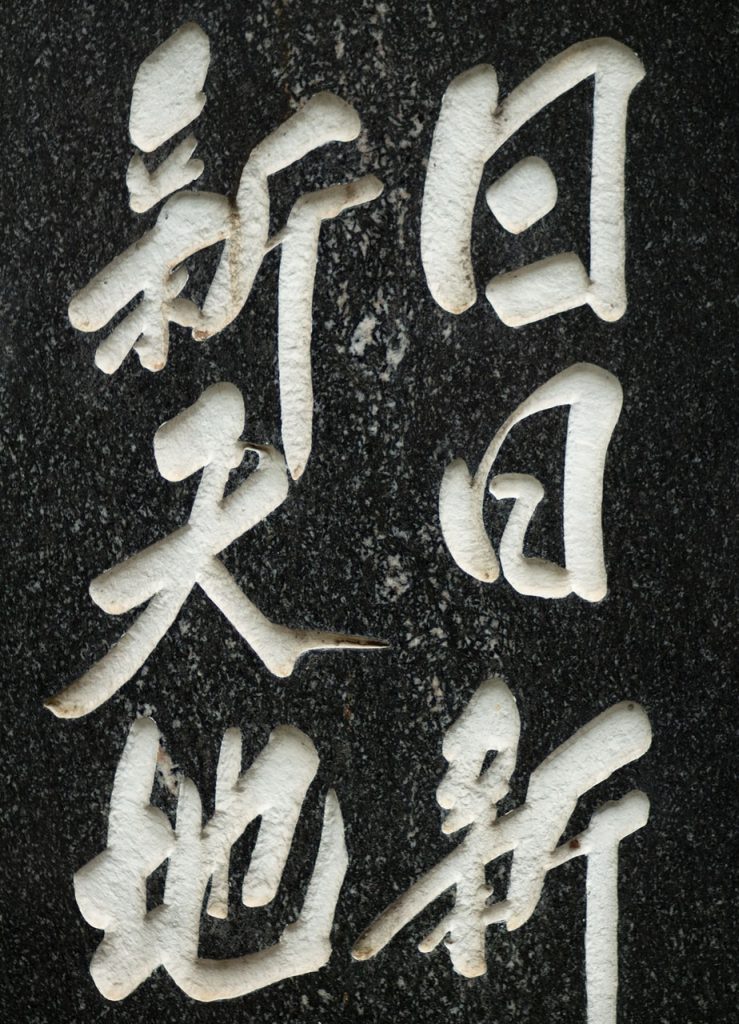 日日新
新天地